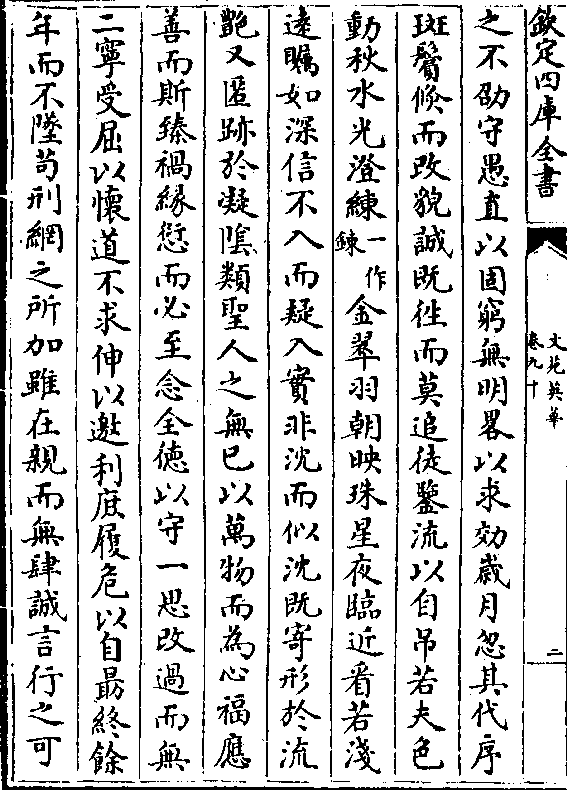 欽定四庫全書
文苑英華
卷九十
二
之不劭守愚直以固窮無明畧以求効歲月忽其代序
斑鬢倐而改貌誠既徃而莫追徒鑒流以自吊若夫色
動秋水光澄練一作鍊金翠羽朝映珠星夜臨近看若淺
遠矚如深信不入而疑入實非沈而似沈既寄形於流
艷又匿跡於凝隂類聖人之無已以萬物而為心福應
善而斯臻禍緣愆而必至念全徳以守一思改過而無
二寧受屈以懷道不求伸以邀利庻履危以自朂終餘
年而不墜茍刑網之所加雖在親而無肆誠言行之可